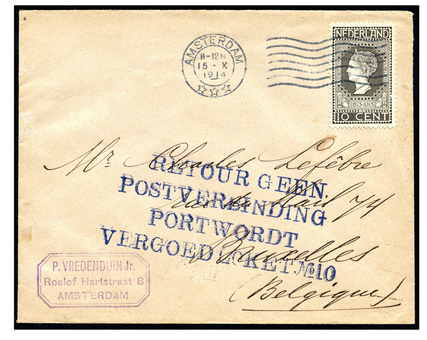 AMSTERDAM
11-12 N
15 - X
1914
NEDERLAND
10 CENT
Mr Charles Lefèbre
74
Bruxelles
(Belgique)
RETOUR GEEN
POSTVERBINDING
PORT WORDT
VERGOED LOKET No 10
P. VREDENDUIN Jr.
Roelof Hartstraat 8
AMSTERDAM